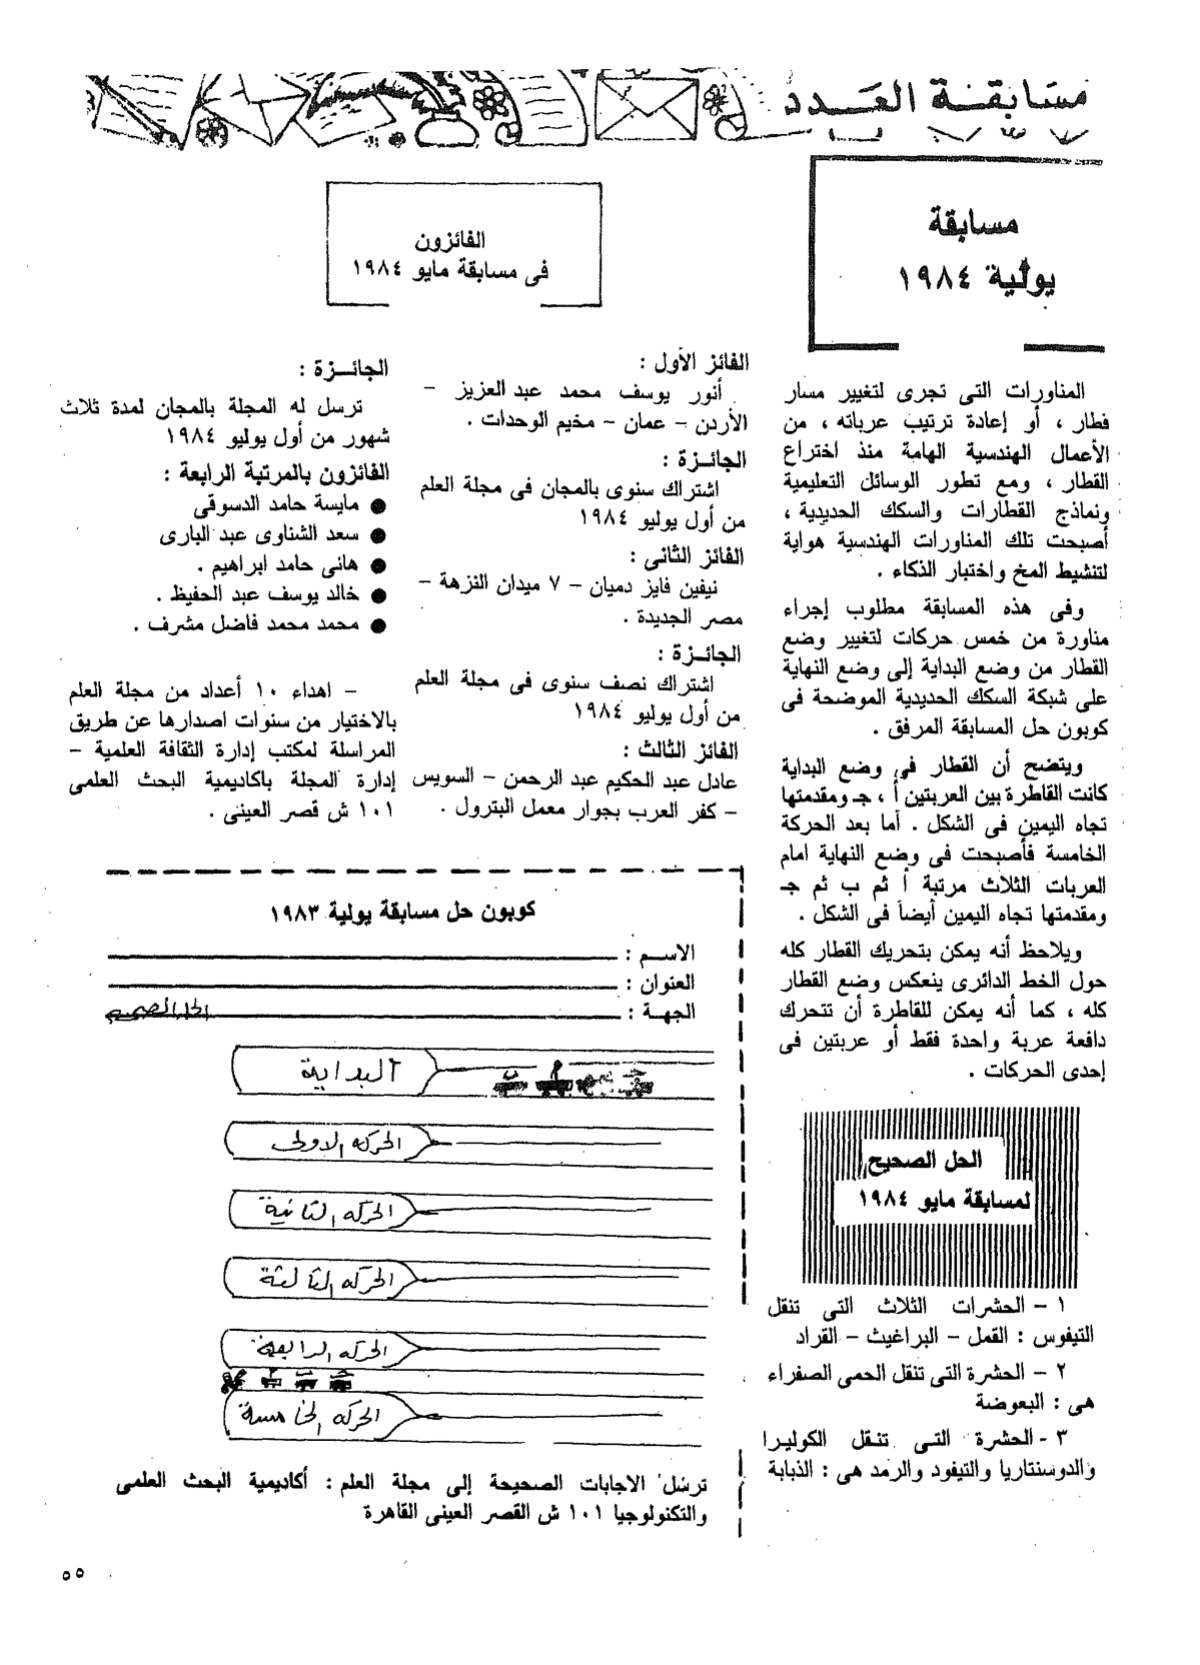 مسابقة العدد
مسابقة
يولية ١٩٨٤
المناورات التى تجرى لتغيير مسار
قطار ، أو إعادة ترتيب عرباته ، من
الأعمال الهندسية الهامة منذ اختراع
القطار ، ومع تطور الوسائل التعليمية
ونماذج القطارات والسكك الحديدية ،
أصبحت تلك المناورات الهندسية هواية
لتنشيط المخ واختبار الذكاء .
وفى هذه المسابقة مطلوب إجراء
مناورة من خمس حركات لتغيير وضع
القطار من وضع البداية إلى وضع النهاية
على شبكة السكك الحديدية الموضحة فى
كوبون حل المسابقة المرفق .
ويتضح أن القطار فى وضع البداية
كانت القاطرة بين العربتين أ ، جـ ومقدمتها
تجاه اليمين فى الشكل . أما بعد الحركة
الخامسة فأصبحت فى وضع النهاية امام
العربات الثلاث مرتبة أ ثم ب ثم جـ
ومقدمتها تجاه اليمين أيضاً فى الشكل .
ويلاحظ أنه يمكن بتحريك القطار كله
حول الخط الدائرى ينعكس وضع القطار
كله ، كما أنه يمكن للقاطرة أن تتحرك
دافعة عربة واحدة فقط أو عربتين فى
إحدى الحركات .
الحل الصحيح
لمسابقة مايو ١٩٨٤
١ - الحشرات الثلاث التى تنقل
التيفوس : القمل - البراغيث - القراد
٢ - الحشرة التى تنقل الحمى الصفراء
هى : البعوضة
٣ - الحشرة التى تنقل الكوليرا
والدوسنتاريا والتيفود والرمد هى : الذبابة
الفائزون
فى مسابقة مايو ١٩٨٤
الفائز الأول :
أنور يوسف محمد عبد العزيز -
الأردن - عمان - مخيم الوحدات .
الجائـزة :
اشتراك سنوى بالمجان فى مجلة العلم
من أول يوليو ١٩٨٤
الفائز الثانى :
نيفين فايز دميان - ٧ ميدان النزهة -
مصر الجديدة .
الجائـزة :
اشتراك نصف سنوى فى مجلة العلم
من أول يوليو ١٩٨٤
الفائز الثالث :
عادل عبد الحكيم عبد الرحمن - السويس
- كفر العرب بجوار معمل البترول .
الجائـزة :
ترسل له المجلة بالمجان لمدة ثلاث
شهور من أول يوليو ١٩٨٤
الفائزون بالمرتبة الرابعة :
● مايسة حامد الدسوقى
● سعد الشناوى عبد البارى
● هانى حامد ابراهيم .
● خالد يوسف عبد الحفيظ .
● محمد محمد فاضل مشرف .
- اهداء ١٠ أعداد من مجلة العلم
بالاختيار من سنوات اصدارها عن طريق
المراسلة لمكتب إدارة الثقافة العلمية -
إدارة المجلة باكاديمية البحث العلمى
١٠١ ش قصر العينى .
كوبون حل مسابقة يولية ١٩٨٣
الاسـم :
العنوان :
الجهـة :
الحل الصحيح
البداية
الحركه الاولى
الحركه الثانية
الحركه الثالثة
الحركه الرابعة
الحركه الخامسة
ترسل الاجابات الصحيحة إلى مجلة العلم : أكاديمية البحث العلمى
والتكنولوجيا ١٠١ ش القصر العينى القاهرة
٥٥